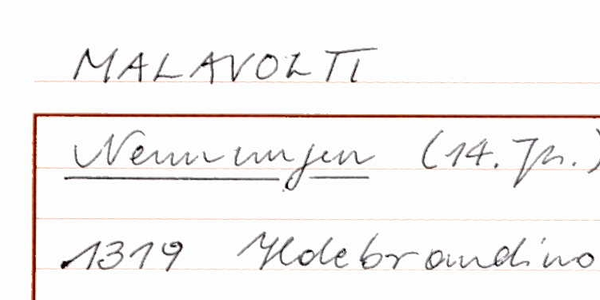 MALAVOLTI
Nennungen (14. Jh.)
1319 Ildebrandino